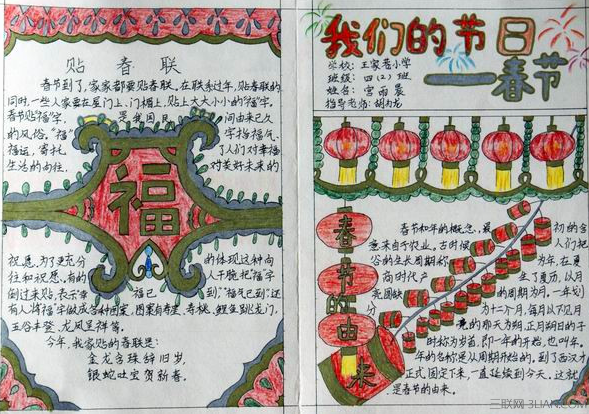 贴春联
春节到了，家家都要贴春联。在联系过年，贴春联的
同时，一些人家要在屋门上、门楣上，贴上大大小小的"福"字。
春节贴"福"字，是我国民间由来已久
的风俗。"福"字指福气、
福运，寄托了人们对幸福
生活的向往，对美好未来的
福
祝愿。为了更充分的体现这种向
往和祝愿，有的人干脆把"福"字
倒过来贴，表示"幸福已到""福气已到"还
有人将"福"字做成各种图案，图案有寿星、寿桃、鲤鱼跳龙门、
五谷丰登、龙凤呈祥等。
今年，我家贴的春联是：
金龙含珠辞旧岁，
银蛇吐宝贺新春。
我们的节日
——春节
学校：王家巷小学
班级：四（2）班
姓名：宫雨晨
指导老师：
春节的由来
春节和年的概念，最初的含
意来由于农业，古时候人们把
谷的生长周期称为年，在夏
商时代产生了夏历，以月
亮圆缺的周期为月，一年划
分为十二个月，每月以不见月
亮的那天为朔，正月朔日的子
时称为岁首，即一年的开始，也叫年。
年的名称是从周期开始的，到了西汉才
正式固定下来，一直延续到今天。这就
是春节的由来。
三联网 3LIAN.COM